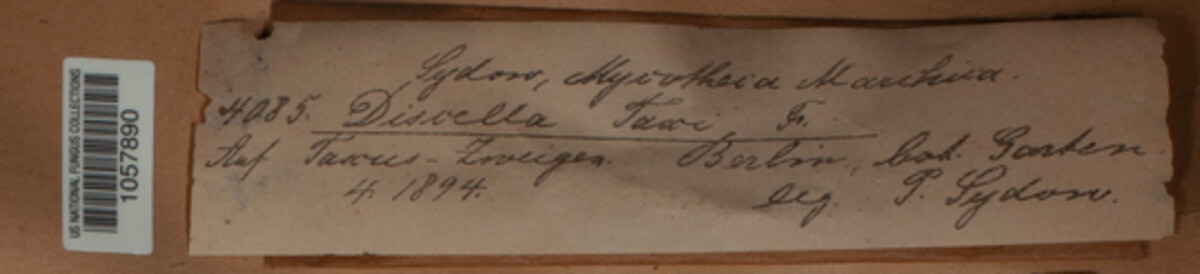 US NATIONAL FUNGUS COLLECTIONS
1057890
Sydow, Mycotheca Marchica.
4085. Discella Taxi F.
Auf Taxus-Zweigen. Berlin, bot. Garten.
4. 1894. leg. P. Sydow.